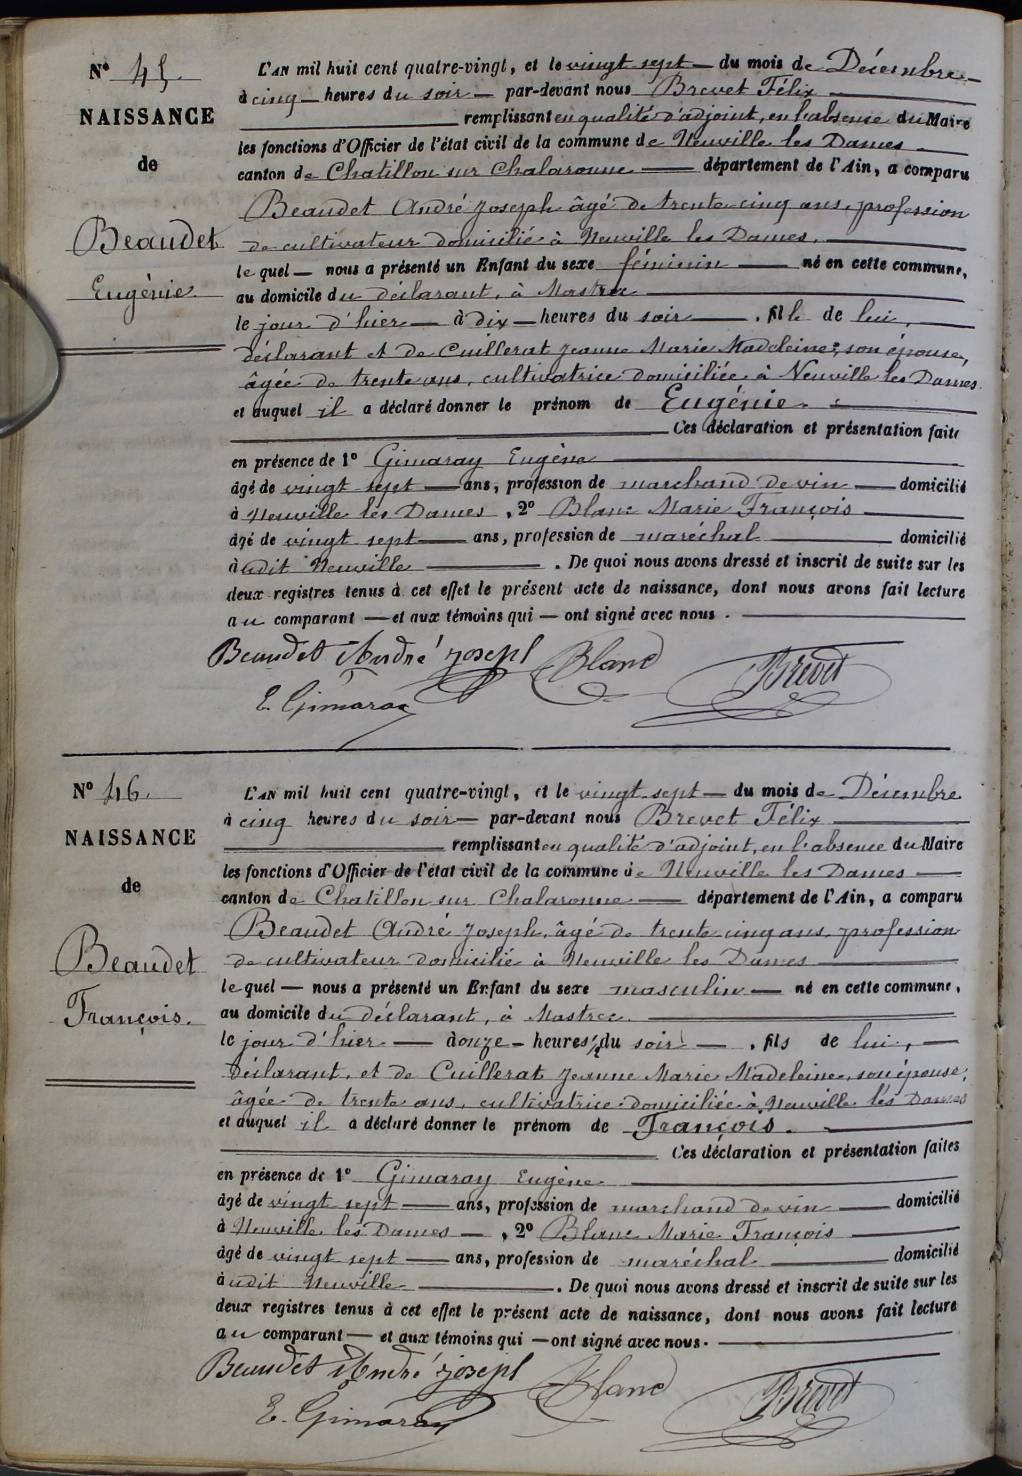 N° 45.
NAISSANCE
de
Beaudet
Eugénie.
L'AN mil huit cent quatre-vingt, et le vingt sept — du mois de Décembre —
à cinq — heures du soir — par-devant nous Brevet Félix
remplissant en qualité d'adjoint, en l'absence du Maire
les fonctions d'Officier de l'état civil de la commune de Neuville les Dames
canton de Chatillon sur Chalaronne — département de l'Ain, a comparu
Beaudet André Joseph âgé de trente cinq ans, profession
de cultivateur domicilié à Neuville les Dames,
le quel — nous a présenté un Enfant du sexe féminin — né en cette commune,
au domicile du déclarant, à Mastrec
le jour d'hier — à dix — heures du soir — , fille de lui,
déclarant et de Cuillerat Jeanne Marie Madeleine, son épouse,
âgée de trente ans, cultivatrice domiciliée à Neuville les Dames
et auquel il a déclaré donner le prénom de Eugénie.
Ces déclaration et présentation faites
en présence de 1° Gimaray Eugène
âgé de vingt sept — ans, profession de marchand de vin — domicilié
à Neuville les Dames , 2° Blanc Marie François
âgé de vingt sept — ans, profession de maréchal domicilié
à udit Neuville — . De quoi nous avons dressé et inscrit de suite sur les
deux registres tenus à cet effet le présent acte de naissance, dont nous avons fait lecture
au comparant — et aux témoins qui — ont signé avec nous.
Beaudet André joseph Blanc Brevet
E. Gimaray
N° 46.
NAISSANCE
de
Beaudet
François.
L'AN mil huit cent quatre-vingt, et le vingt sept — du mois de Décembre
à cinq heures du soir — par-devant nous Brevet Félix
remplissant en qualité d'adjoint, en l'absence du Maire
les fonctions d'Officier de l'état civil de la commune de Neuville les Dames —
canton de Chatillon sur Chalaronne — département de l'Ain, a comparu
Beaudet André Joseph, âgé de trente cinq ans, profession
de cultivateur domicilié à Neuville les Dames
le quel — nous a présenté un Enfant du sexe masculin — né en cette commune,
au domicile du déclarant, à Mastrec
le jour d'hier — à onze — heures ½ du soir — , fils de lui, —
déclarant, et de Cuillerat Jeanne Marie Madeleine, son épouse,
âgée de trente ans, cultivatrice domiciliée à Neuville les Dames
et auquel il a déclaré donner le prénom de François.
Ces déclaration et présentation faites
en présence de 1° Gimaray Eugène
âgé de vingt sept — ans, profession de marchand de vin — domicilié
à Neuville les Dames — , 2° Blanc Marie François
âgé de vingt sept — ans, profession de maréchal domicilié
à udit Neuville — . De quoi nous avons dressé et inscrit de suite sur les
deux registres tenus à cet effet le présent acte de naissance, dont nous avons fait lecture
au comparant — et aux témoins qui — ont signé avec nous.
Beaudet André joseph Blanc Brevet
E. Gimaray